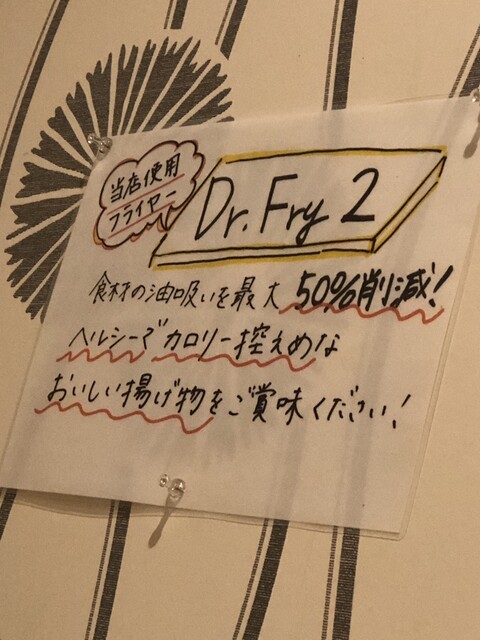 当店使用
フライヤー
Dr. Fry 2
食材の油吸いを最大 50%削減!
ヘルシーでカロリー控えめな
おいしい揚げ物をご賞味ください!